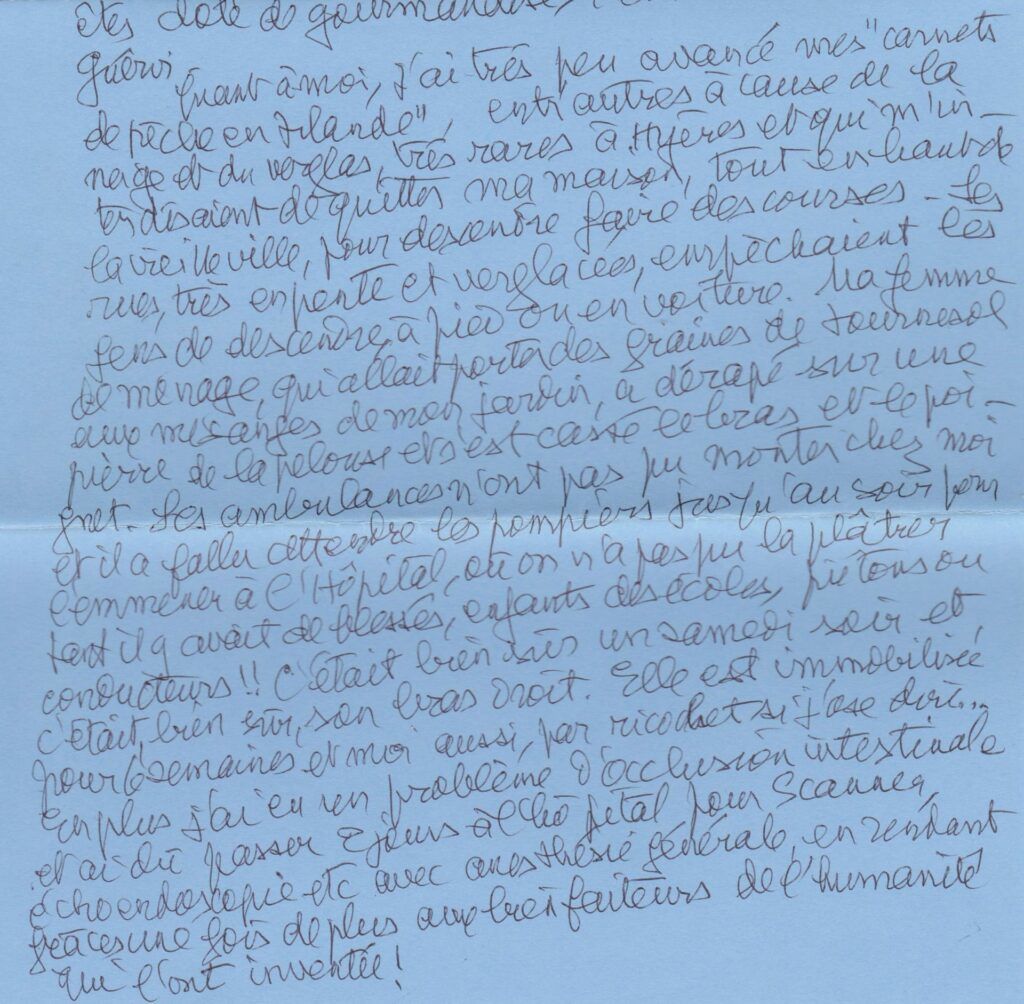 êtes doté de gourmandise,
guéri
Quant à moi, j'ai très peu avancé mes "carnets
de pêche en Irlande", entr'autres à cause de la
neige et du verglas, très rares à Hyères et qui m'in-
terdisaient de quitter ma maison, tout en haut de
la vieille ville, pour descendre faire des courses - Les
rues, très en pente et verglacées, empêchaient les
gens de descendre, à pied ou en voiture. Ma femme
de ménage, qui allait porter des graines de tournesol
aux mésanges de mon jardin, a dérapé sur une
pierre de la pelouse et s'est cassé le bras et le poi-
gnet. Les ambulances n'ont pas pu monter chez moi
et il a fallu attendre les pompiers jusqu'au soir pour
l'emmener à l'Hôpital, où on n'a pas pu la plâtrer
tant il y avait de blessés, enfants des écoles, piétons ou
conducteurs !! C'était bien sûr un samedi soir et,
c'était, bien sûr, son bras droit. Elle est immobilisée
pour 6 semaines et moi aussi, par ricochet si j'ose dire...
En plus j'ai eu un problème d'occlusion intestinale
et ai dû passer 2 jours à l'hôpital pour Scanner,
échoendoscopie etc avec anesthésie générale, en rendant
grâces une fois de plus aux bienfaiteurs de l'humanité
qui l'ont inventée !